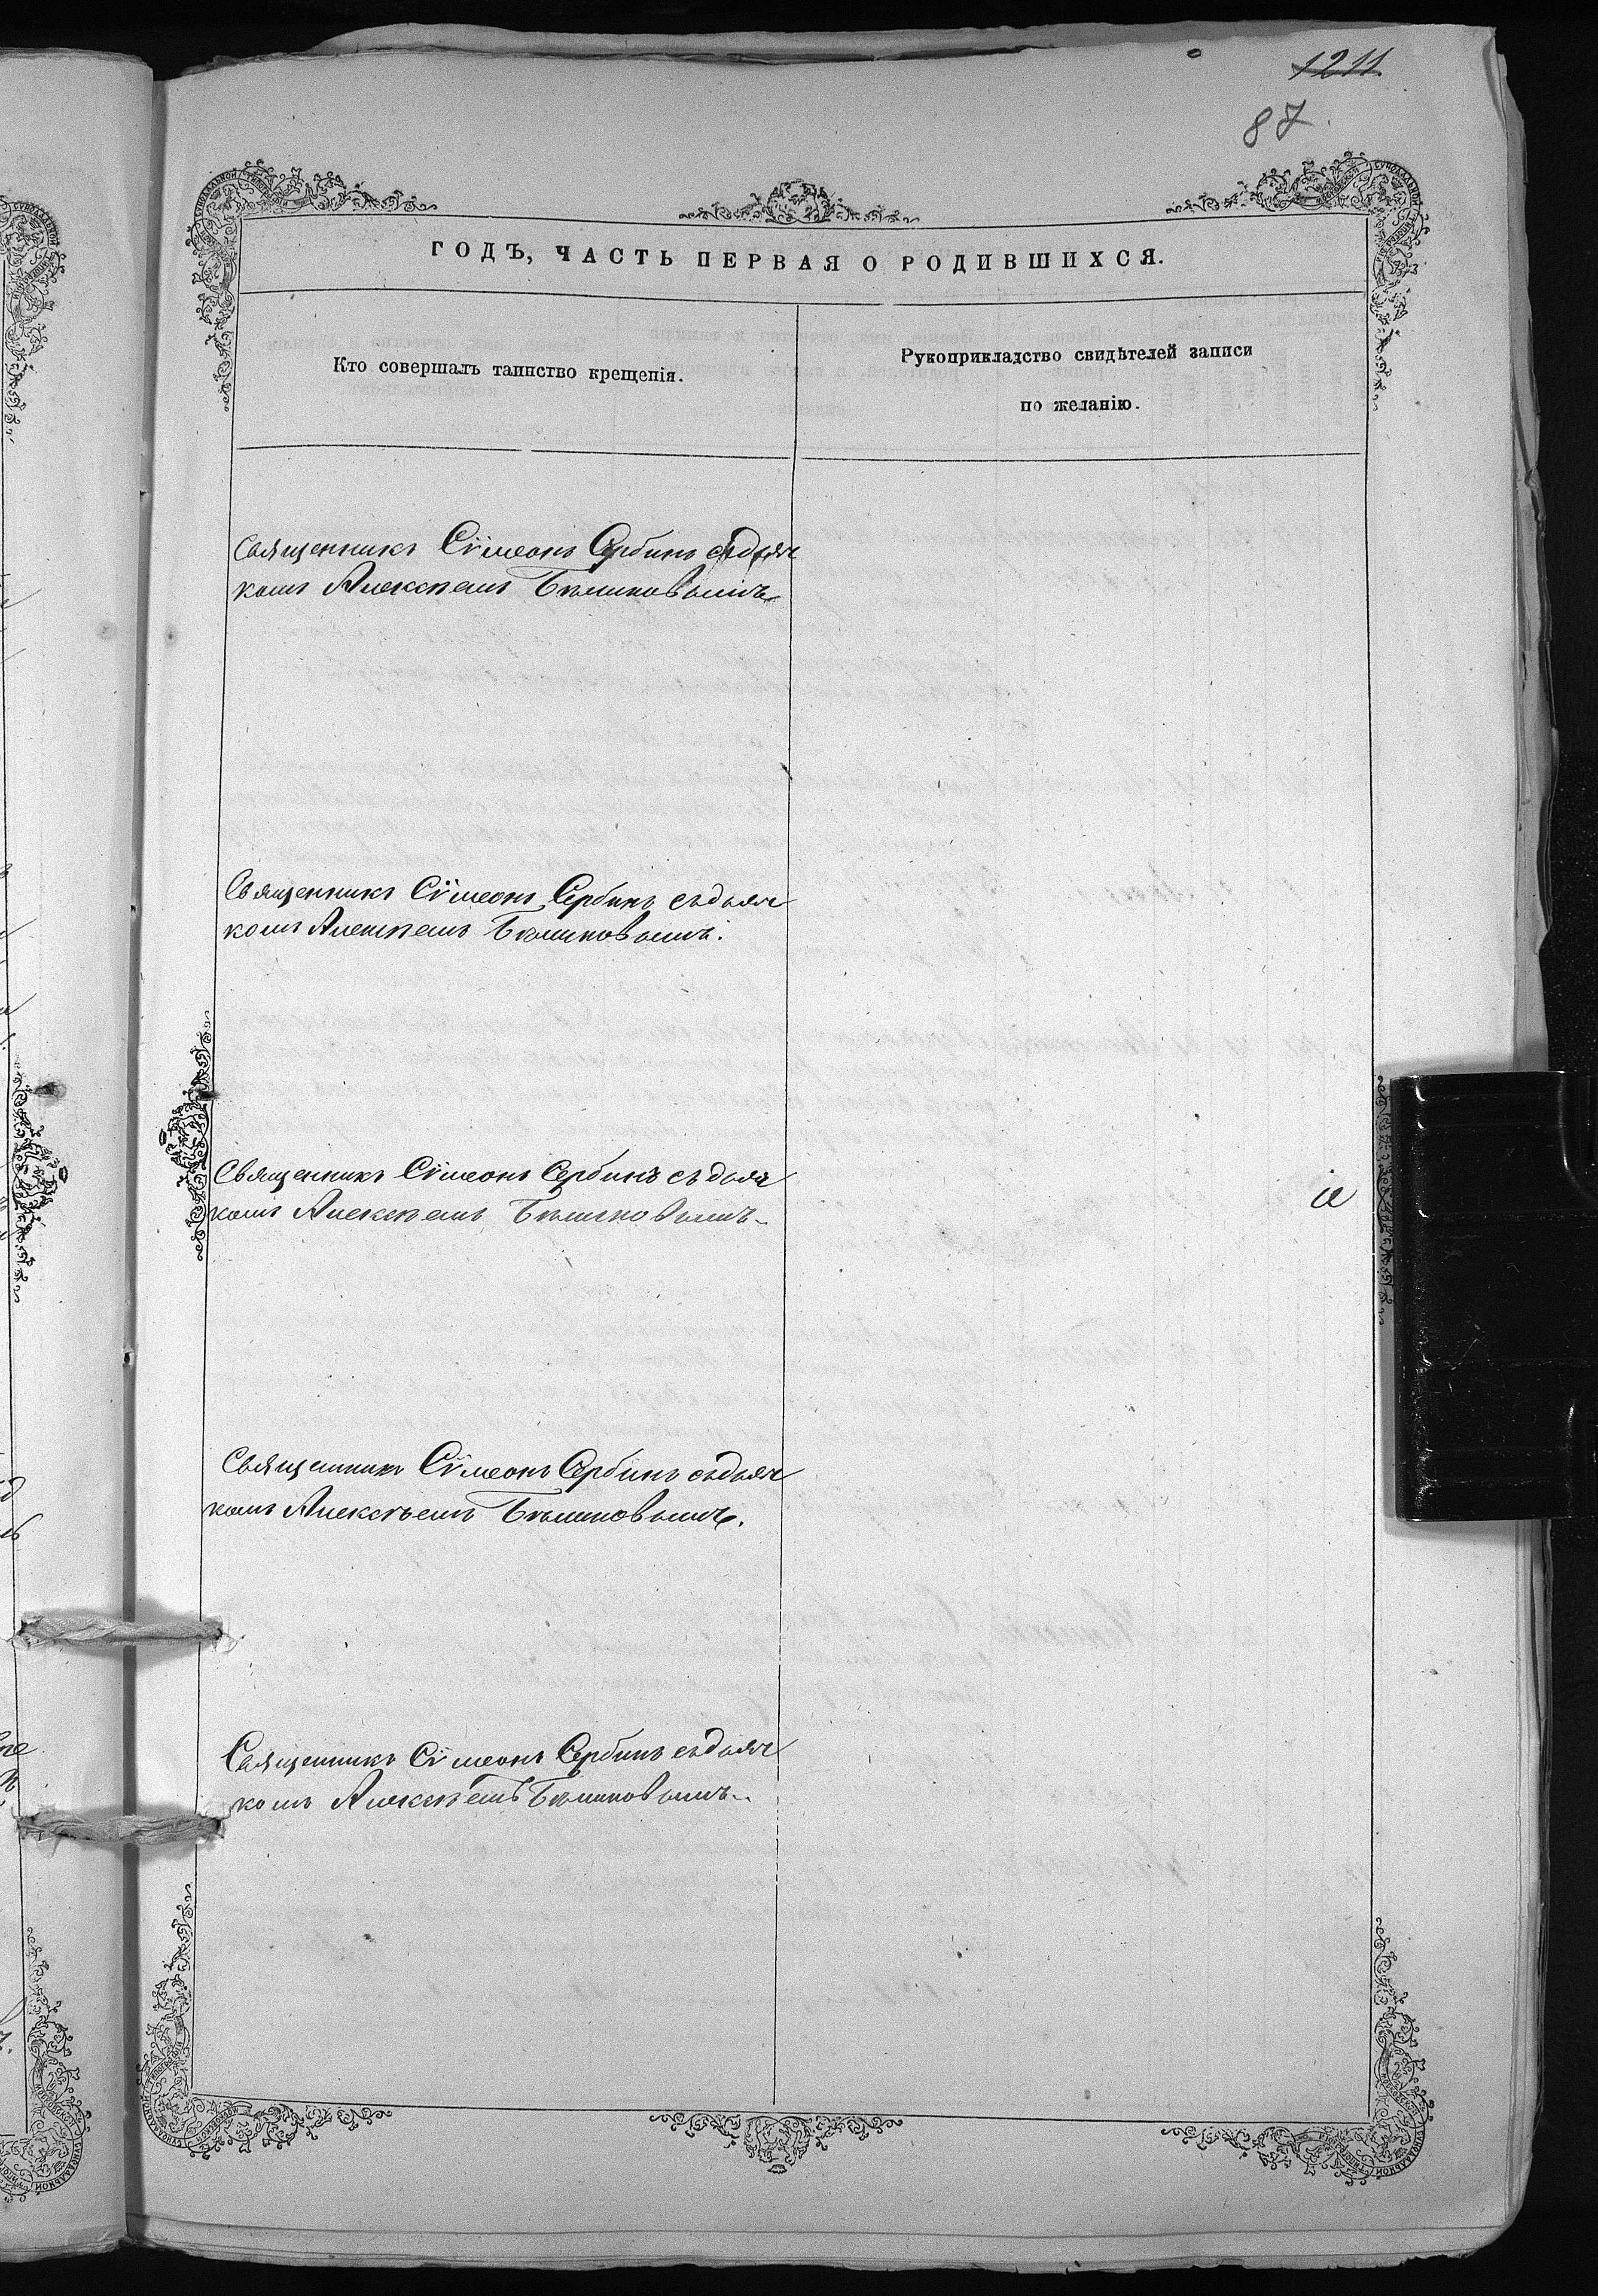 1211
87.
ГОДЪ, ЧАСТЬ ПЕРВАЯ О РОДИВШИХСЯ.
Кто совершалъ таинство крещенія.
Рукоприкладство свидѣтелей записи
по желанію.
Священникъ Сѵмеонъ Сербинъ съ дьяч
комъ Алексѣемъ Бѣликовымъ
Священникъ Сѵмеонъ Сербинъ съ дьяч
комъ Алексѣемъ Бѣликовымъ.
Священникъ Сѵмеонъ Сербинъ съ дьяч
комъ Алексѣемъ Бѣликовымъ.
Священникъ Сѵмеонъ Сербинъ съ дьяч
комъ Алексѣемъ Бѣликовымъ.
Священникъ Сѵмеонъ Сербинъ съ дьяч
комъ Алексѣемъ Бѣликовымъ.